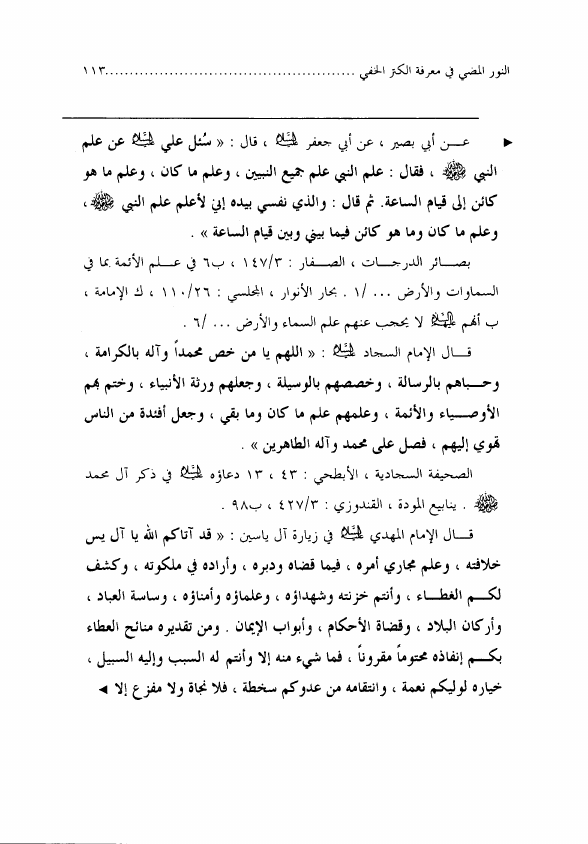 النور المضي في معرفة الكنز الخفي ..................................................١١٣
◄ عـــن أبي بصير ، عن أبي جعفر عليه السلام ، قال : « سُئل علي عليه السلام عن علم
النبي صلى الله عليه وآله وسلم ، فقال : علم النبي علم جميع النبيين ، وعلم ما كان ، وعلم ما هو
كائن إلى قيام الساعة. ثم قال : والذي نفسي بيده إني لأعلم علم النبي صلى الله عليه وآله وسلم ،
وعلم ما كان وما هو كائن فيما بيني وبين قيام الساعة » .
بصــائر الدرجــات ، الصــفار : ١٤٧/٣ ، ب٦ في عــلم الأئمة بما في
السماوات والأرض ... /١ . بحار الأنوار ، المجلسي : ١١٠/٢٦ ، ك الإمامة ،
ب أنهم عليهم السلام لا يحجب عنهم علم السماء والأرض ... /٦ .
قــال الإمام السجاد عليه السلام : « اللهم يا من خص محمداً وآله بالكرامة ،
وحــباهم بالرسالة ، وخصصهم بالوسيلة ، وجعلهم ورثة الأنبياء ، وختم بهم
الأوصــياء والأئمة ، وعلمهم علم ما كان وما بقي ، وجعل أفئدة من الناس
تهوي إليهم ، فصل على محمد وآله الطاهرين » .
الصحيفة السجادية ، الأبطحي : ٤٣ ، ١٣ دعاؤه عليه السلام في ذكر آل محمد
صلى الله عليه وآله وسلم . ينابيع المودة ، القندوزي : ٤٢٧/٣ ، ب٩٨ .
قــال الإمام المهدي عليه السلام في زيارة آل ياسين : « قد آتاكم الله يا آل يس
خلافته ، وعلم مجاري أمره ، فيما قضاه ودبره ، وأراده في ملكوته ، وكشف
لكــم الغطــاء ، وأنتم خزنته وشهداؤه ، وعلماؤه وأمناؤه ، وساسة العباد ،
وأركان البلاد ، وقضاة الأحكام ، وأبواب الإيمان . ومن تقديره منائح العطاء
بكــم إنفاذه محتوماً مقروناً ، فما شيء منه إلا وأنتم له السبب وإليه السبيل ،
خياره لوليكم نعمة ، وانتقامه من عدوكم سخطة ، فلا نجاة ولا مفزع إلا ◄